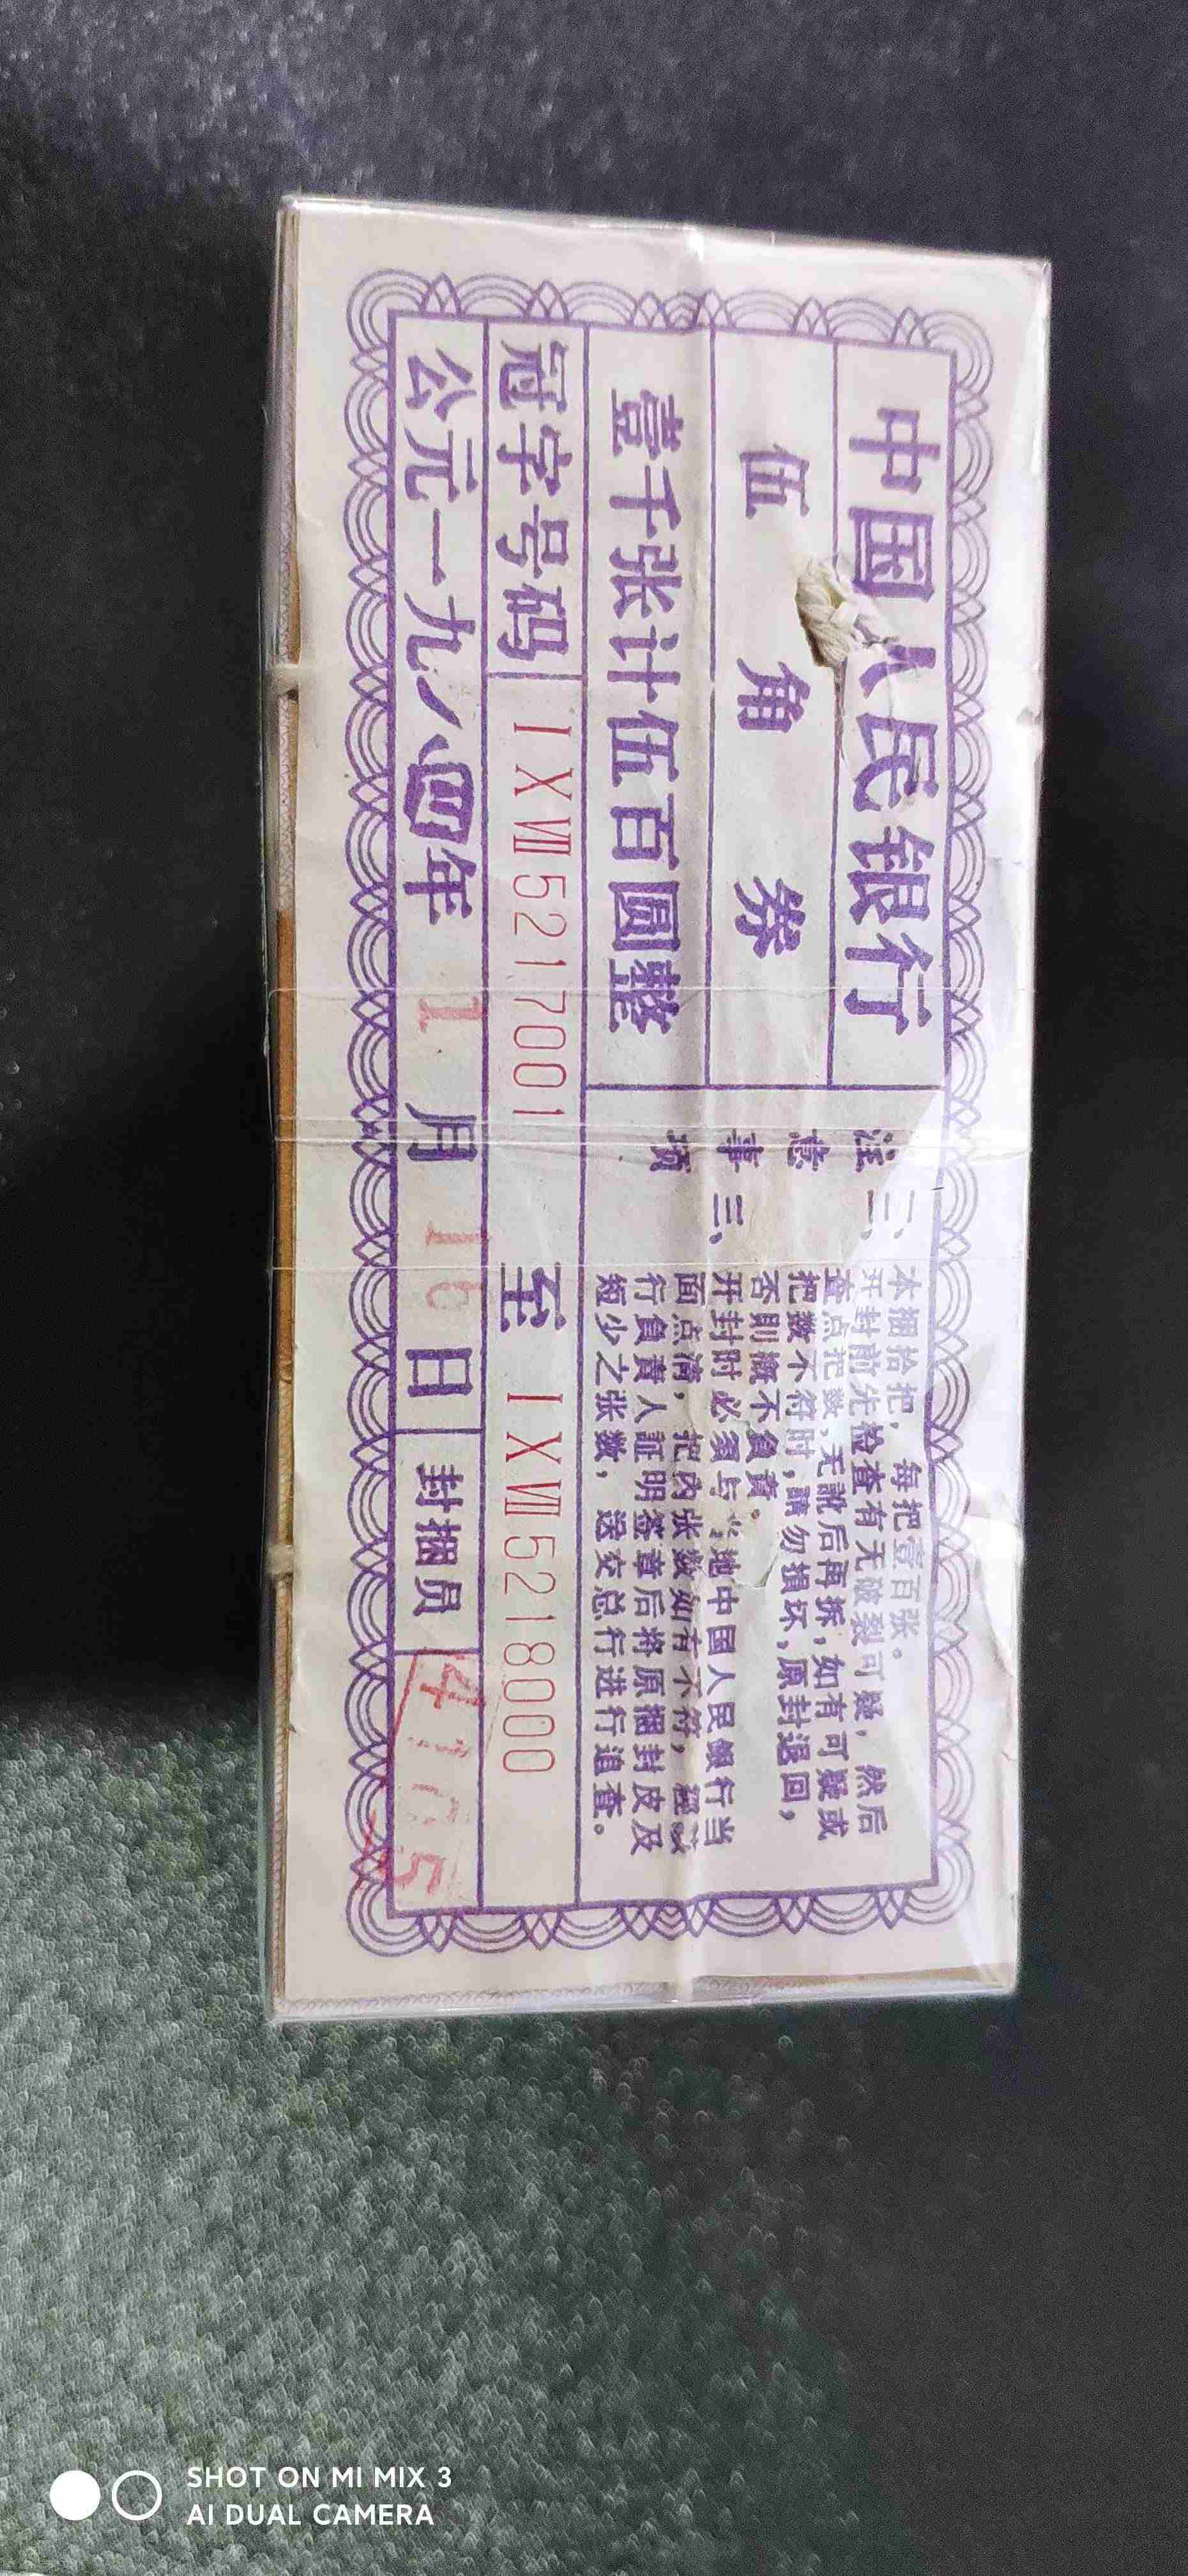 中国人民银行
伍角券
壹千张计伍百圆整
注意事项
本捆拾把，每把壹百张。
二、开封前先检查有无破裂可疑，然后
查点把数，无訛后再拆，如有可疑或
把数不符时，請勿損坏，原封退回，
否則概不負責。
三、开封时必須与当地中国人民銀行当
面点清，把内张数如有不符，經
行負責人証明签章后将原捆封皮及
短少之张数，送交总行进行追查。
冠字号码 I X VII 5217001 至 I X VII 5218000
公元一九八四年 1 月 16 日 封捆员
SHOT ON MI MIX 3
AI DUAL CAMERA